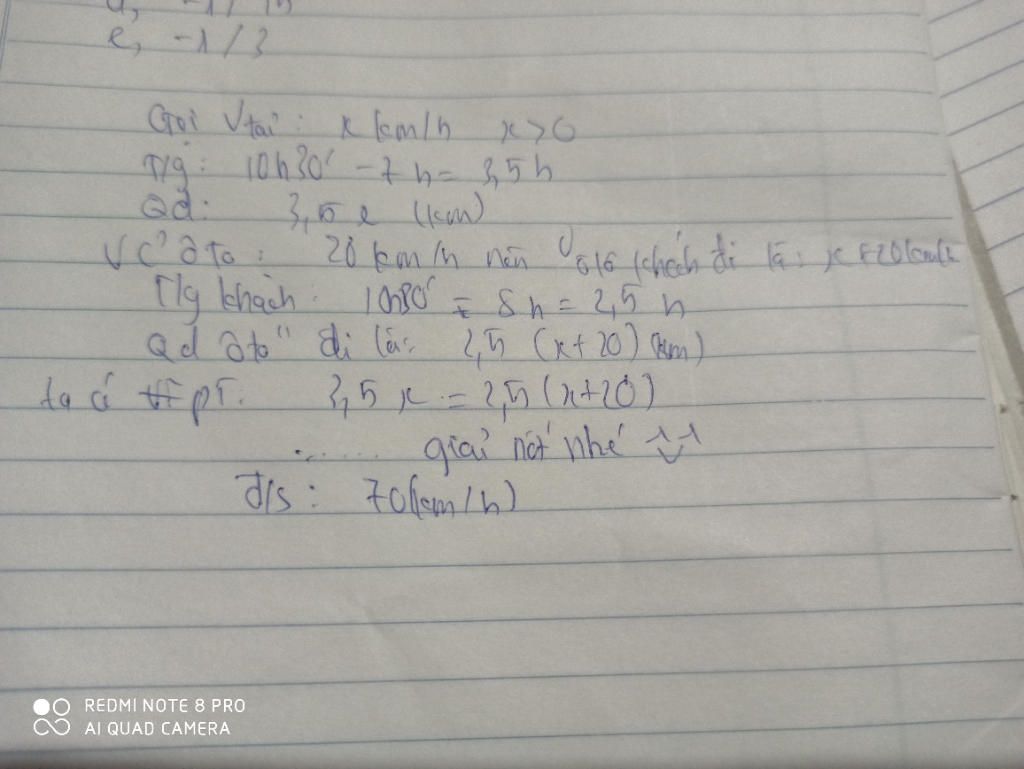 e, -1/3
Gọi Vtải: x km/h x>0
T/g: 10h30' - 7h = 3,5h
Qd: 3,5 x (km)
Vì ôto: 20 km/h nên V ôtô khách đi là: x+20(km/h
T/g khách: 10h30' - 8h = 2,5 h
Qd ôto đi là: 2,5 (x+20) (km)
ta có pT: 3,5 x = 2,5(x+20)
....... giải nốt nhé ^^
đ/s: 70(km/h)
REDMI NOTE 8 PRO
AI QUAD CAMERA